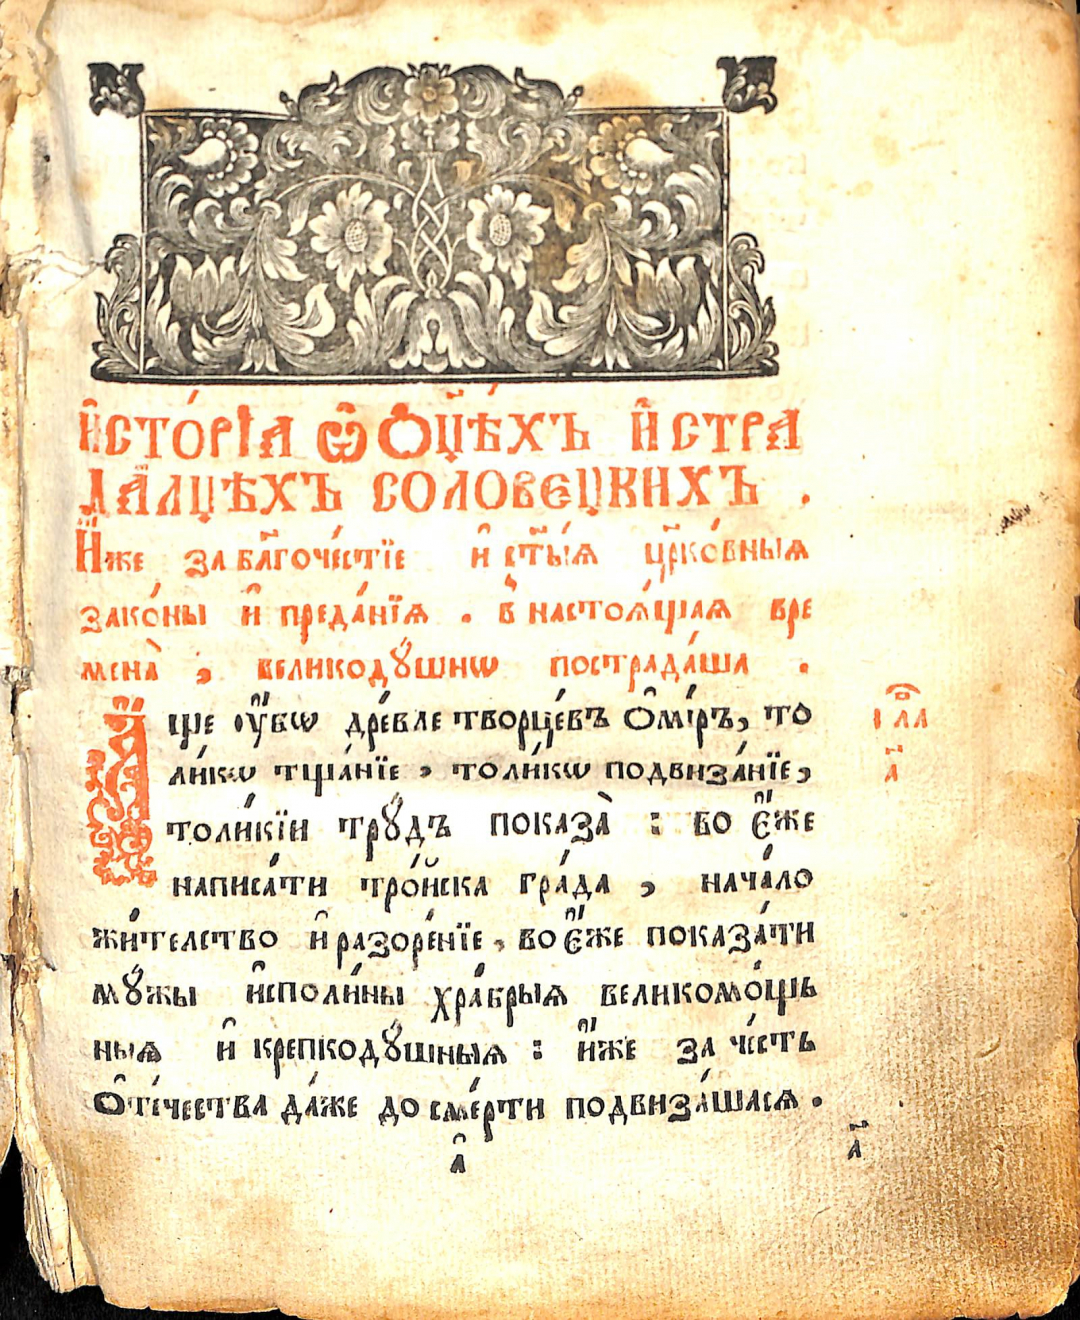 И҆сто́рїѧ ѡ҆ Ѻц҃ѣ́хъ и҆ стра
да́лцѣхъ соловєцкихъ .
И҆̀же за бл҃гоче́стїе и҆ ст҃ы́ѧ цр҃ко́вныѧ
зако́ны и҆ преда́нїѧ . в̾ настоѧ́щаѧ вре
мена̀ , великодꙋ́шнѡ пострада́ша .
А҆́ще ᲂу҆́бѡ дре́вле творце́въ Ѻ҆ми́ръ, то
ли́кѡ тща́нїе , толи́кѡ подвиза́нїе ,
толи́кїи трꙋ́дъ показа̀ : во є҆́же
написа́ти тро́йска гра́да , нача́ло
жи́телство и҆ разоре́нїе , во є҆́же показа́ти
мꙋ́жы и҆споли́ны хра́брыѧ великомо́щь
ныѧ и҆ крепкодꙋ́шныѧ : и҆́же за че́сть
Ѻ҆те́чества да́же до сме́рти подвиза́шасѧ .
І҆лл
а҃
а҆
а҃